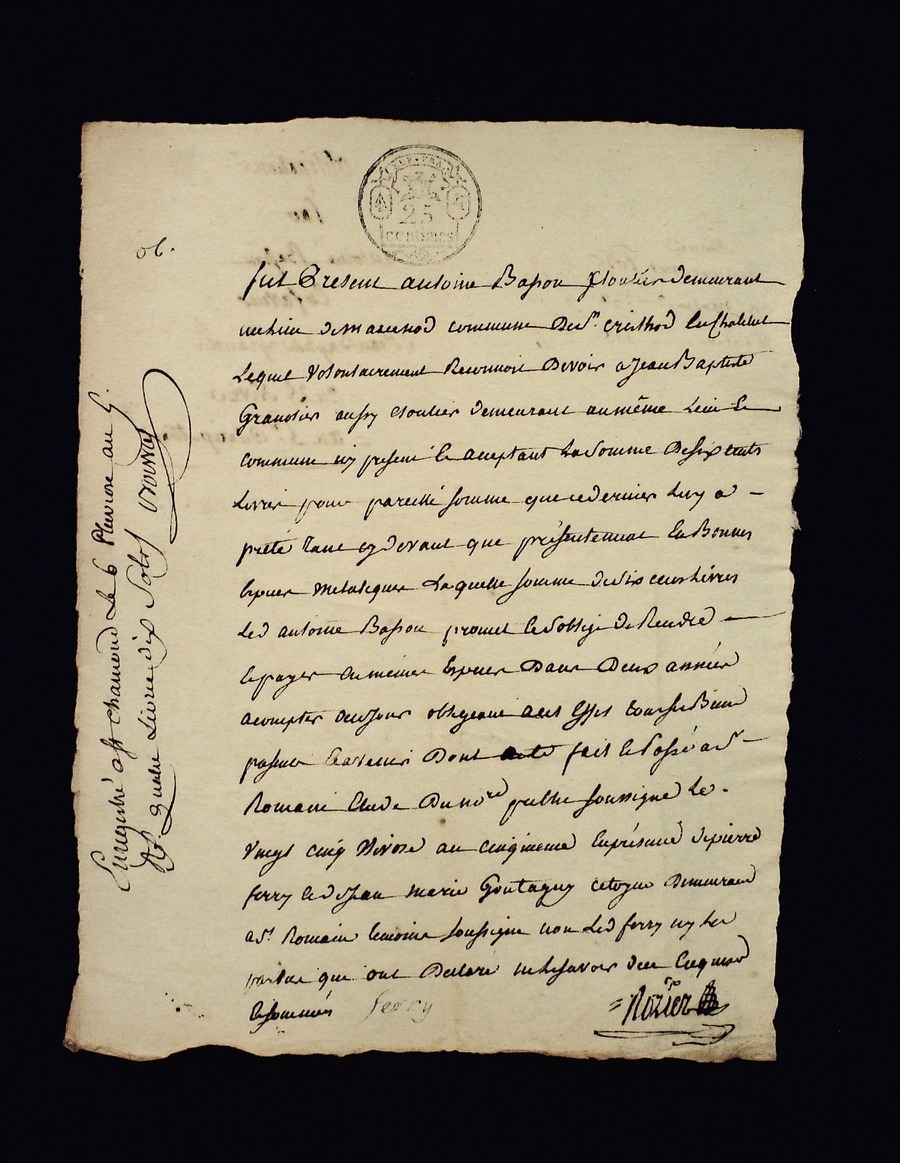 REP. FRA.
25
CENTIMES
ob.
fut Present antoine Basson Cloutier demeurant
au lieu de mazenod commune de St. Cristhod Le Chatelet
Lequel Volontairement Reconnoit Devoir a Jean Baptiste
Granotier aussy Cloutier demeurant au même Lieu et
commune icy present et aceptant La Somme De Six cents
Livres pour pareille somme que ce dernier Luy a
preté tant cy devant que présentement En Bonnes
Espeses Metaliques Laquelle somme de Six cens Livres
Led antoine Basson promet et S'oblige de Rendre
et payer en mêmes Espeses Dans Deux années
a compter de ce Jour obligeant a cet Effet tous ses Biens
presents et avenir Dont acte fait et Passé a St
Romain Etude Du nore public soussigné Le
Vingt cinq Nivose an cinquieme En présence de pierre
ferry et de Jean Marie Gontagny citoyens Demeurant
a St. Romain temoins soussigné non Led ferry ny Les
parties que ont Declaré ne le savoir de ce Enquis
et sommés ferry
Rozier
Enregistré a St chamond Le 6 Pluviose an 5.
R. quatre Livres dix Sols